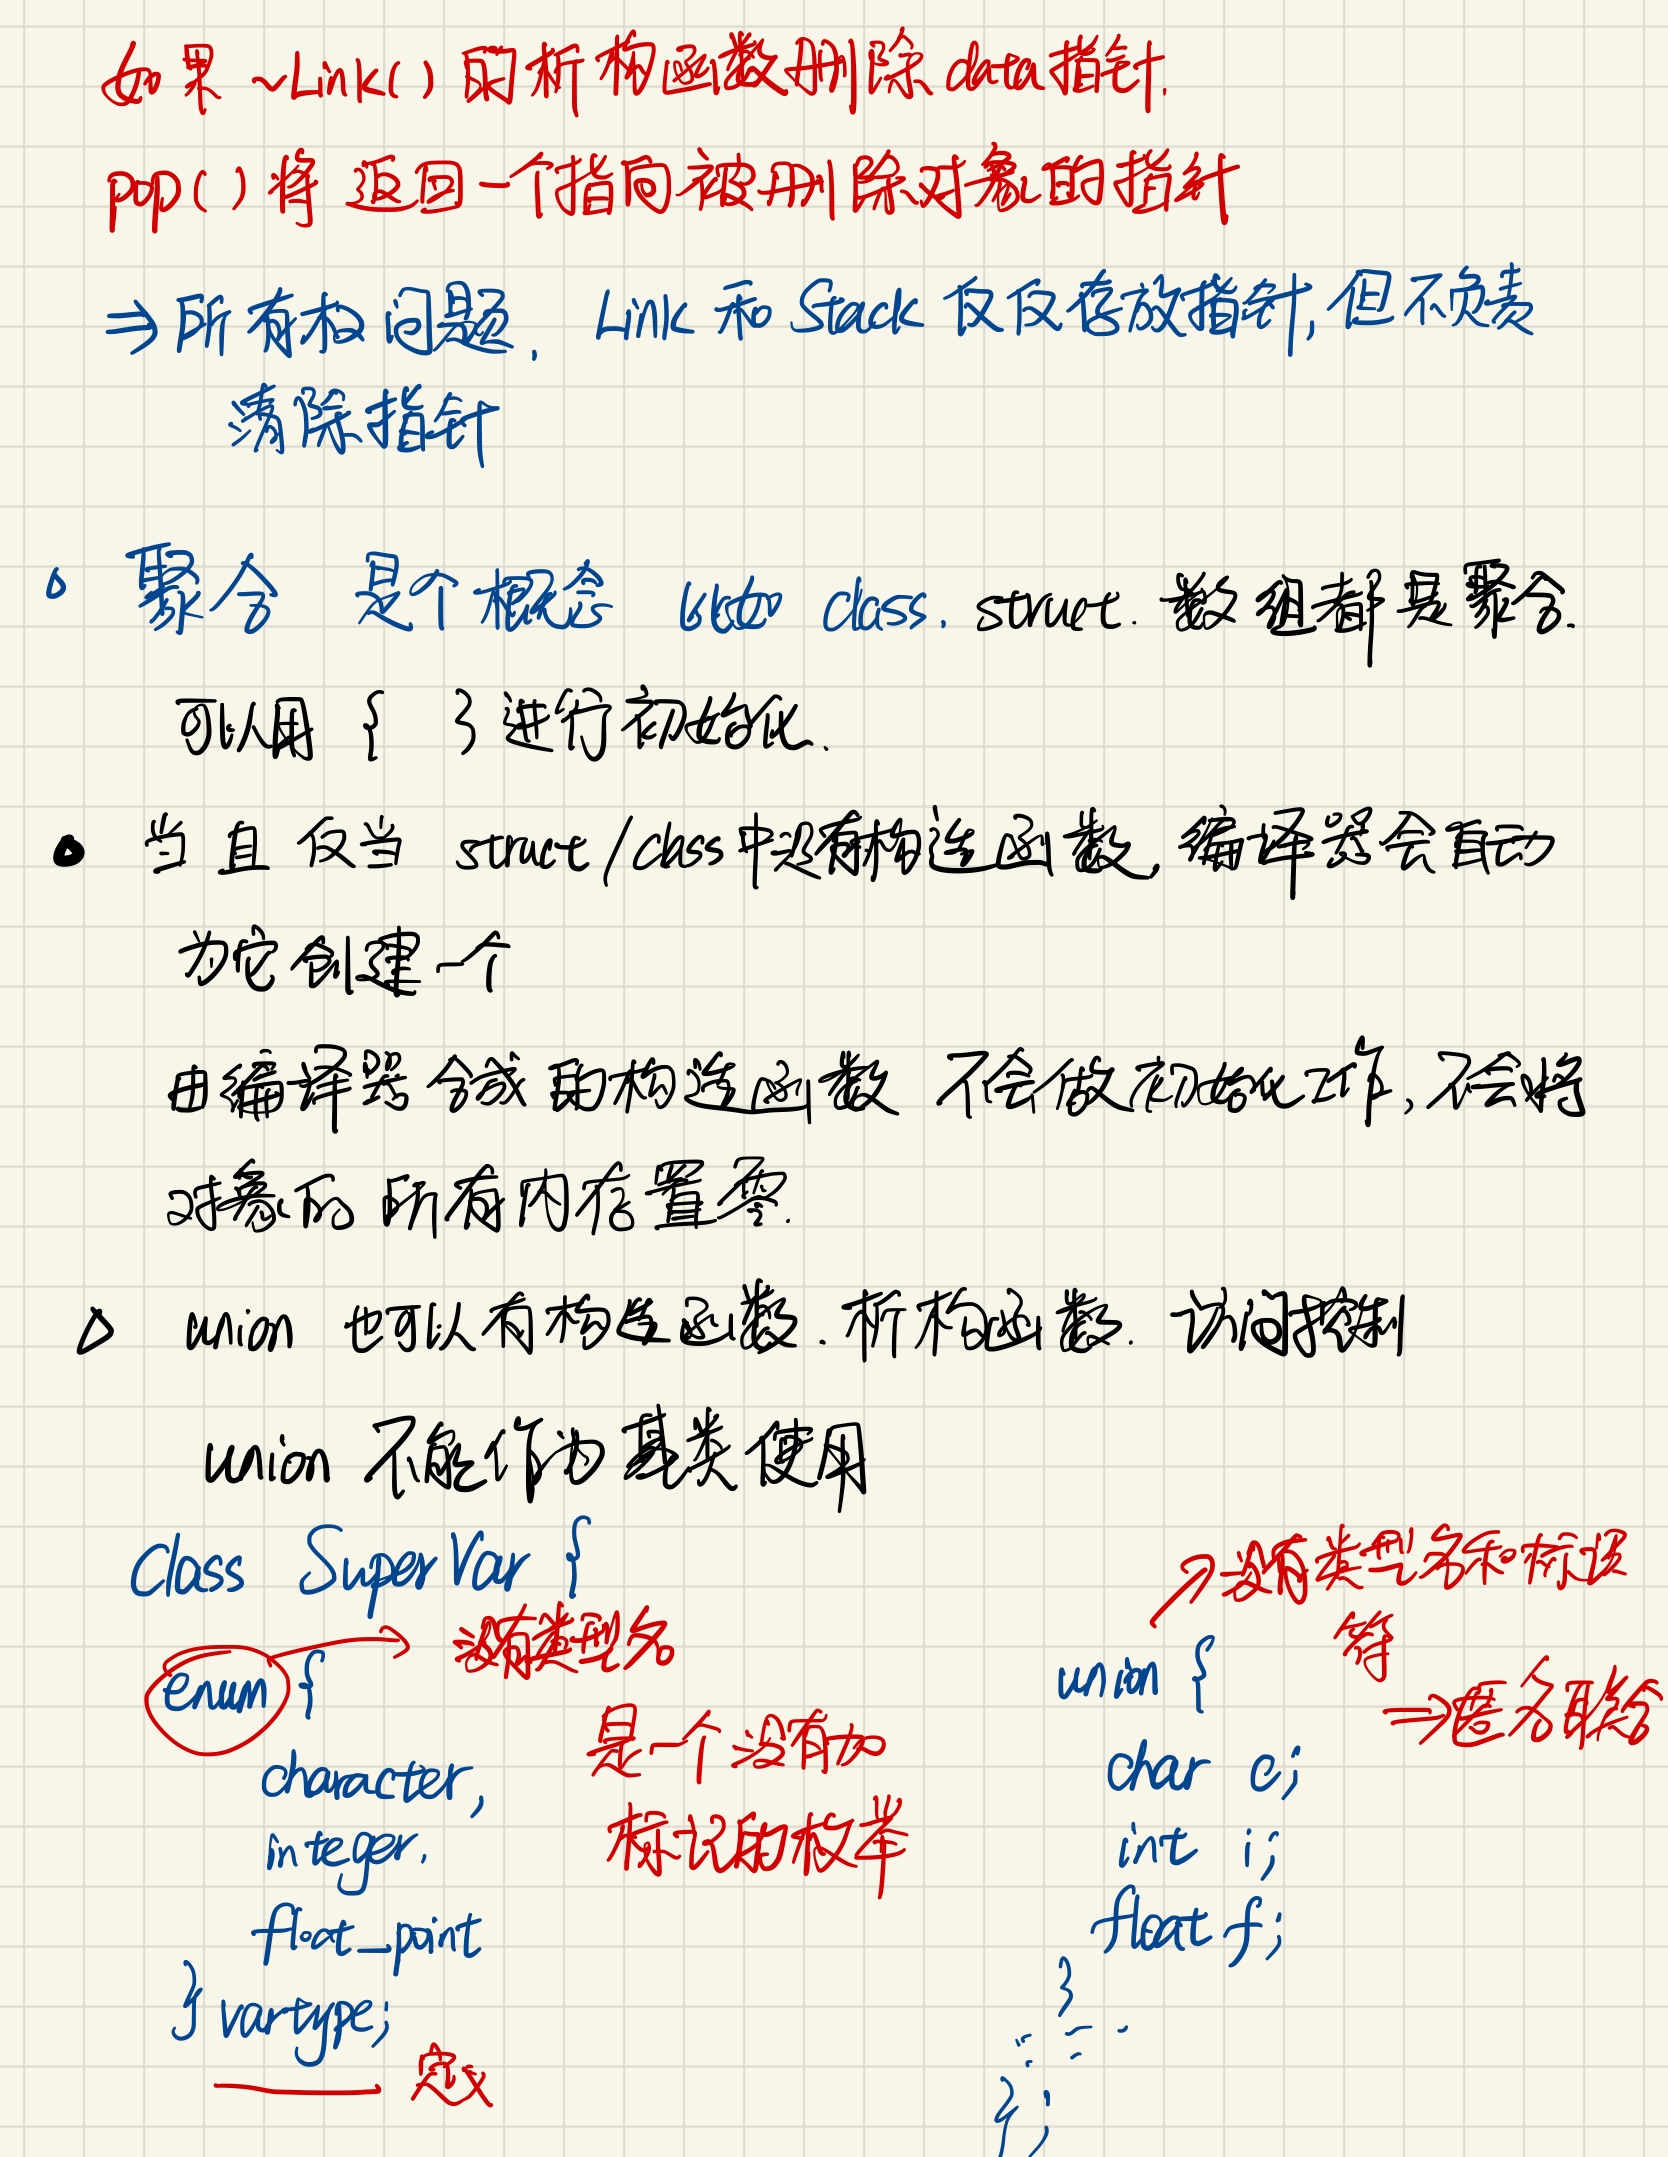 如果 ~Link() 的析构函数删除 data指针.
pop()将 返回一个指向被删除对象的指针
⇒ 所有权问题, Link 和 Stack 仅仅存放指针, 但不负责
清除指针
聚合 是个概念 比如 class. struct. 数组都是聚合.
可以用 { } 进行初始化.
当且仅当 struct/class中没有构造函数, 编译器会自动
为它创建一个
由编译器合成的构造函数 不会做初始化工作, 不会将
对象的所有内存置零.
union 也可以有构造函数. 析构函数. 访问控制
union 不能作为基类使用
Class SuperVar {
enum {
→ 没有类型名
character,
integer.
float_point
} vartype;
定义
是一个没有加
标记的枚举
union {
char c;
int i;
float f;
}
};
没有类型名和标识
符
→匿名联合